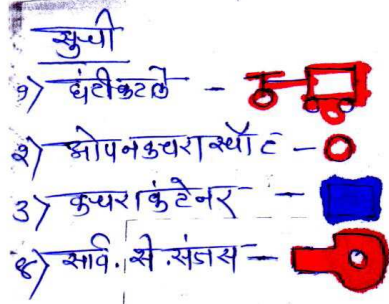 सुची
१) घंटीकटले -
२) ओपनकचरा स्पॉट -
३) कचरा कंटेनर -
४) सार्व. से. संडास -